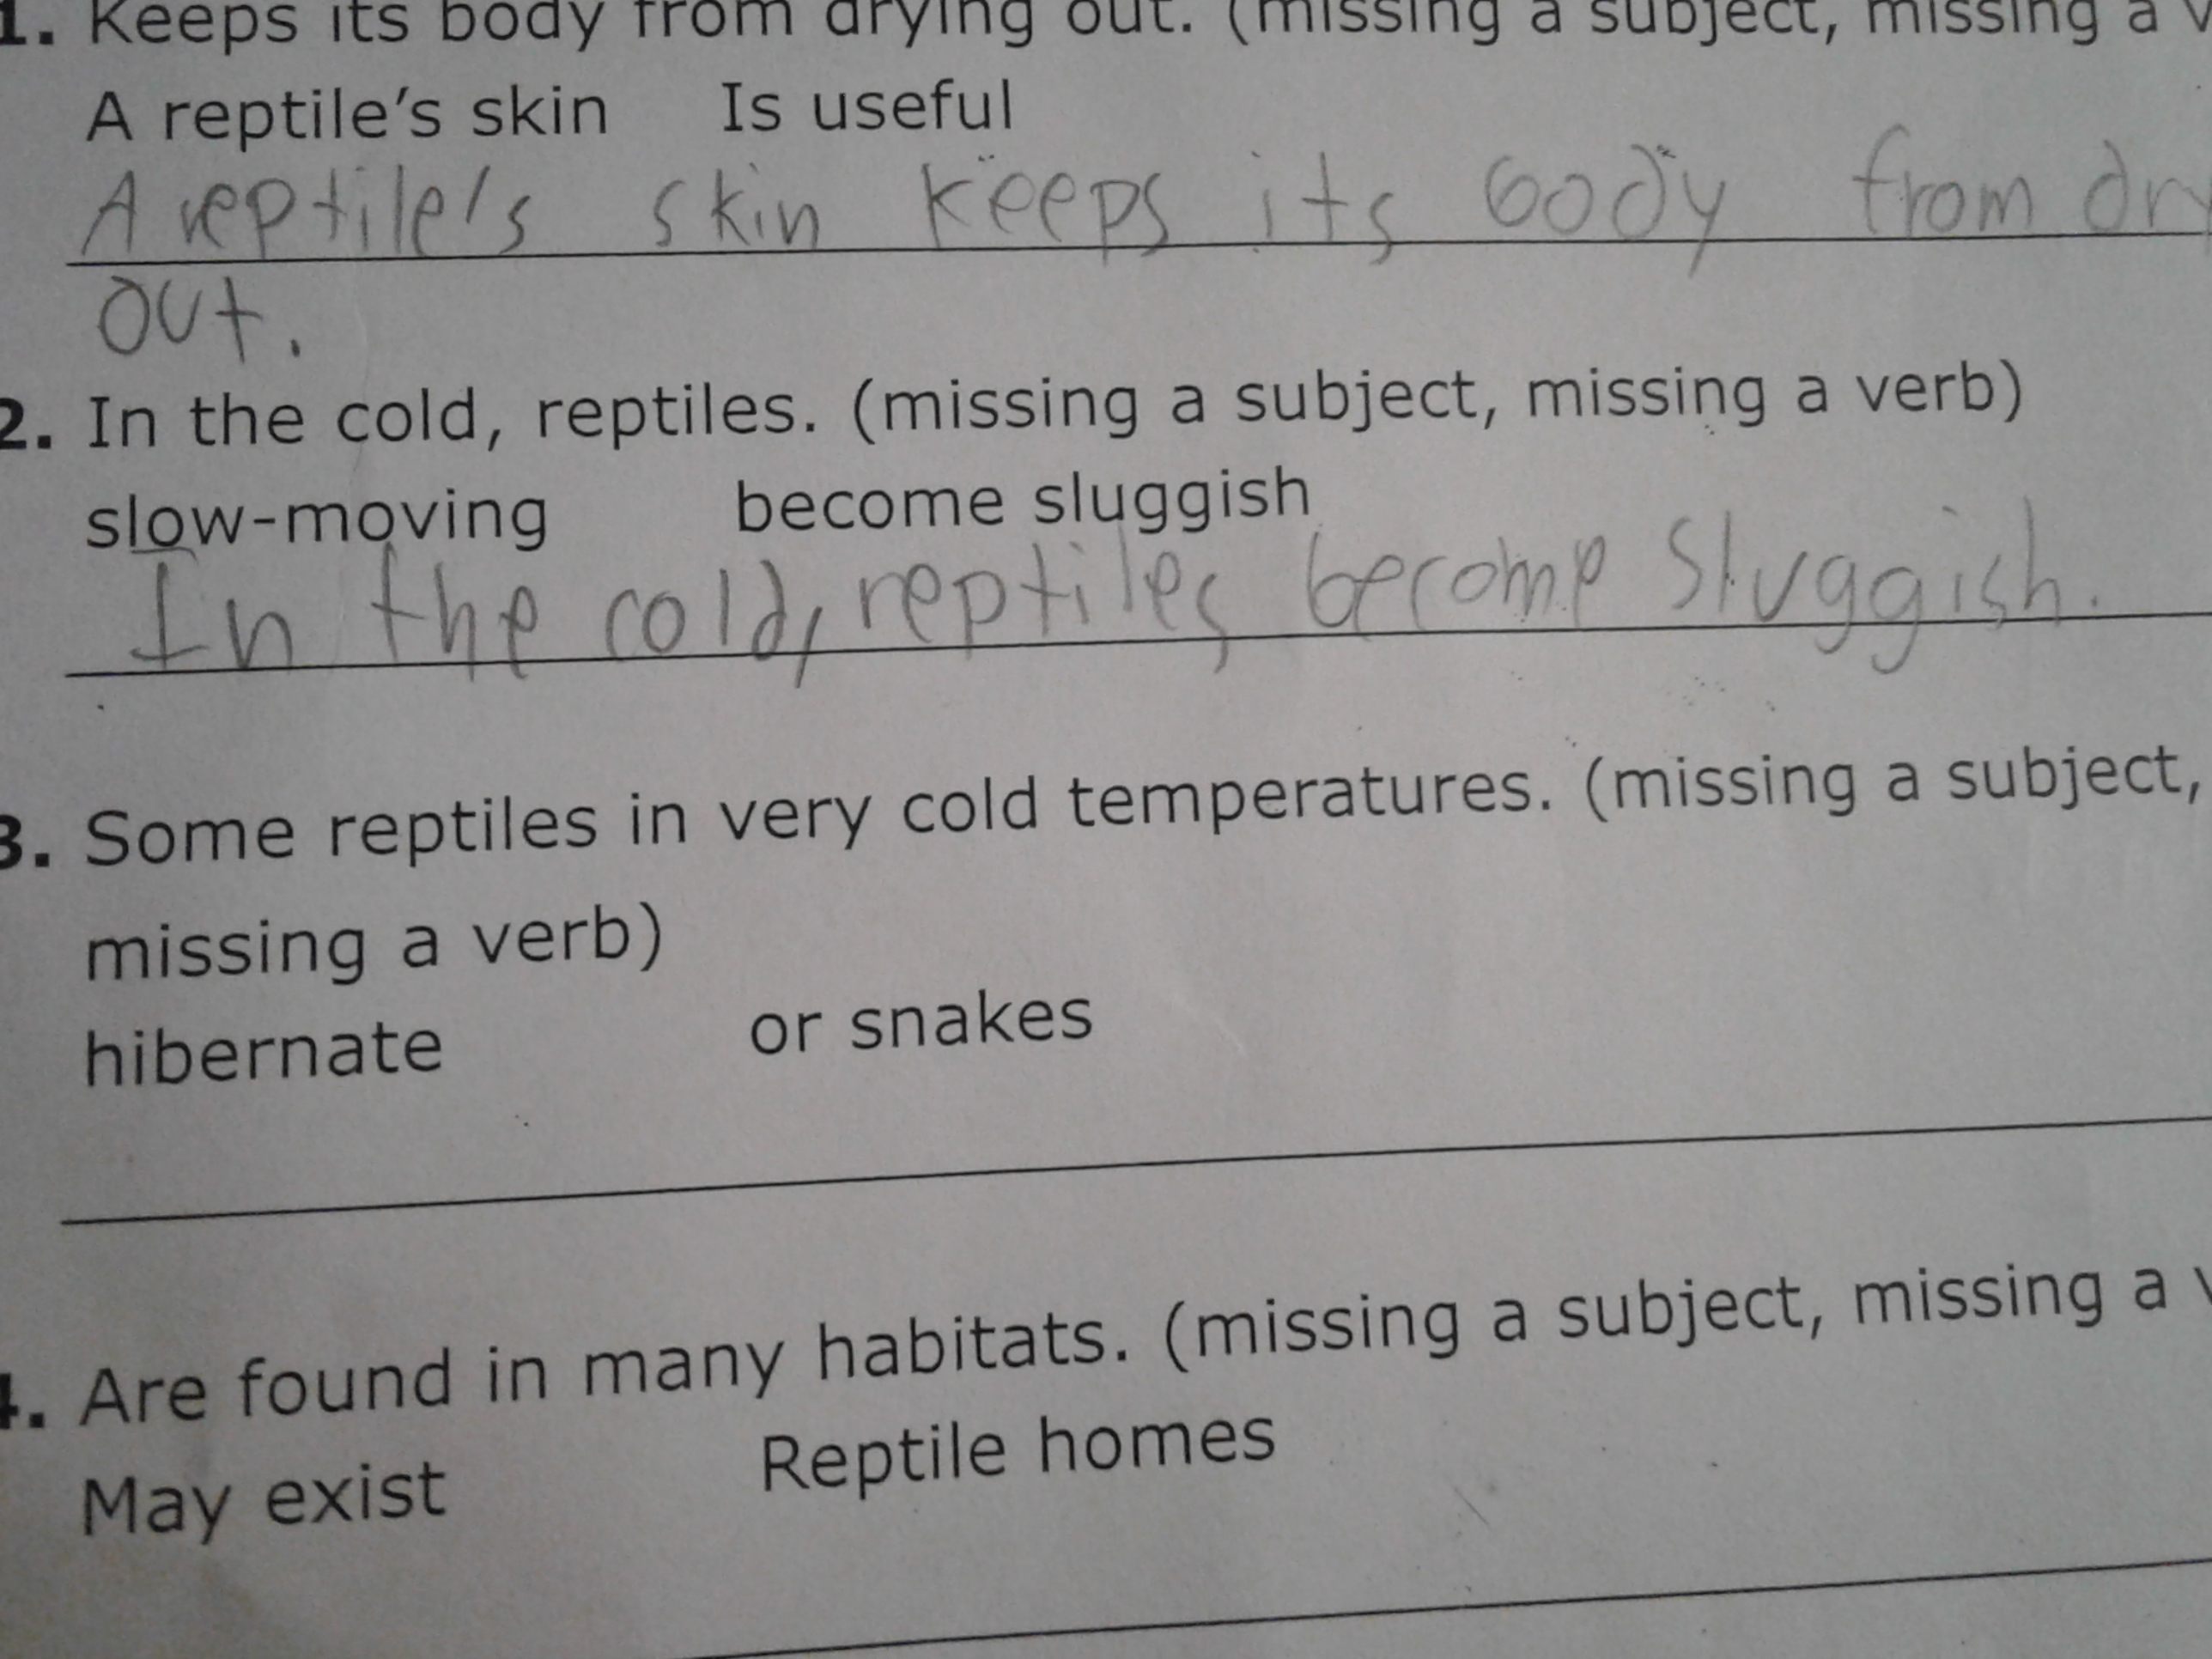 1. Keeps its body from drying out. (missing a subject, missing a
A reptile's skin Is useful
A reptile's skin keeps its body from
out.
2. In the cold, reptiles. (missing a subject, missing a verb)
slow-moving become sluggish
In the cold, reptiles become sluggish.
3. Some reptiles in very cold temperatures. (missing a subject,
missing a verb)
hibernate or snakes
4. Are found in many habitats. (missing a subject, missing a
May exist Reptile homes